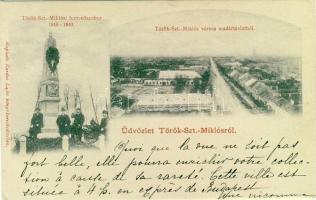 Török-Szt.-Miklósi honvédszobor
1848-1849.
Török-Szt.-Miklós városa madártávlatból.
Üdvözlet Török-Szt.-Miklósról.
Quoi que la one ne soit pas
fort belle, elle pourra enrichir votre collec-
tion à cause de sa rareté. Cette ville est
située à 4 h. en express de Budapest